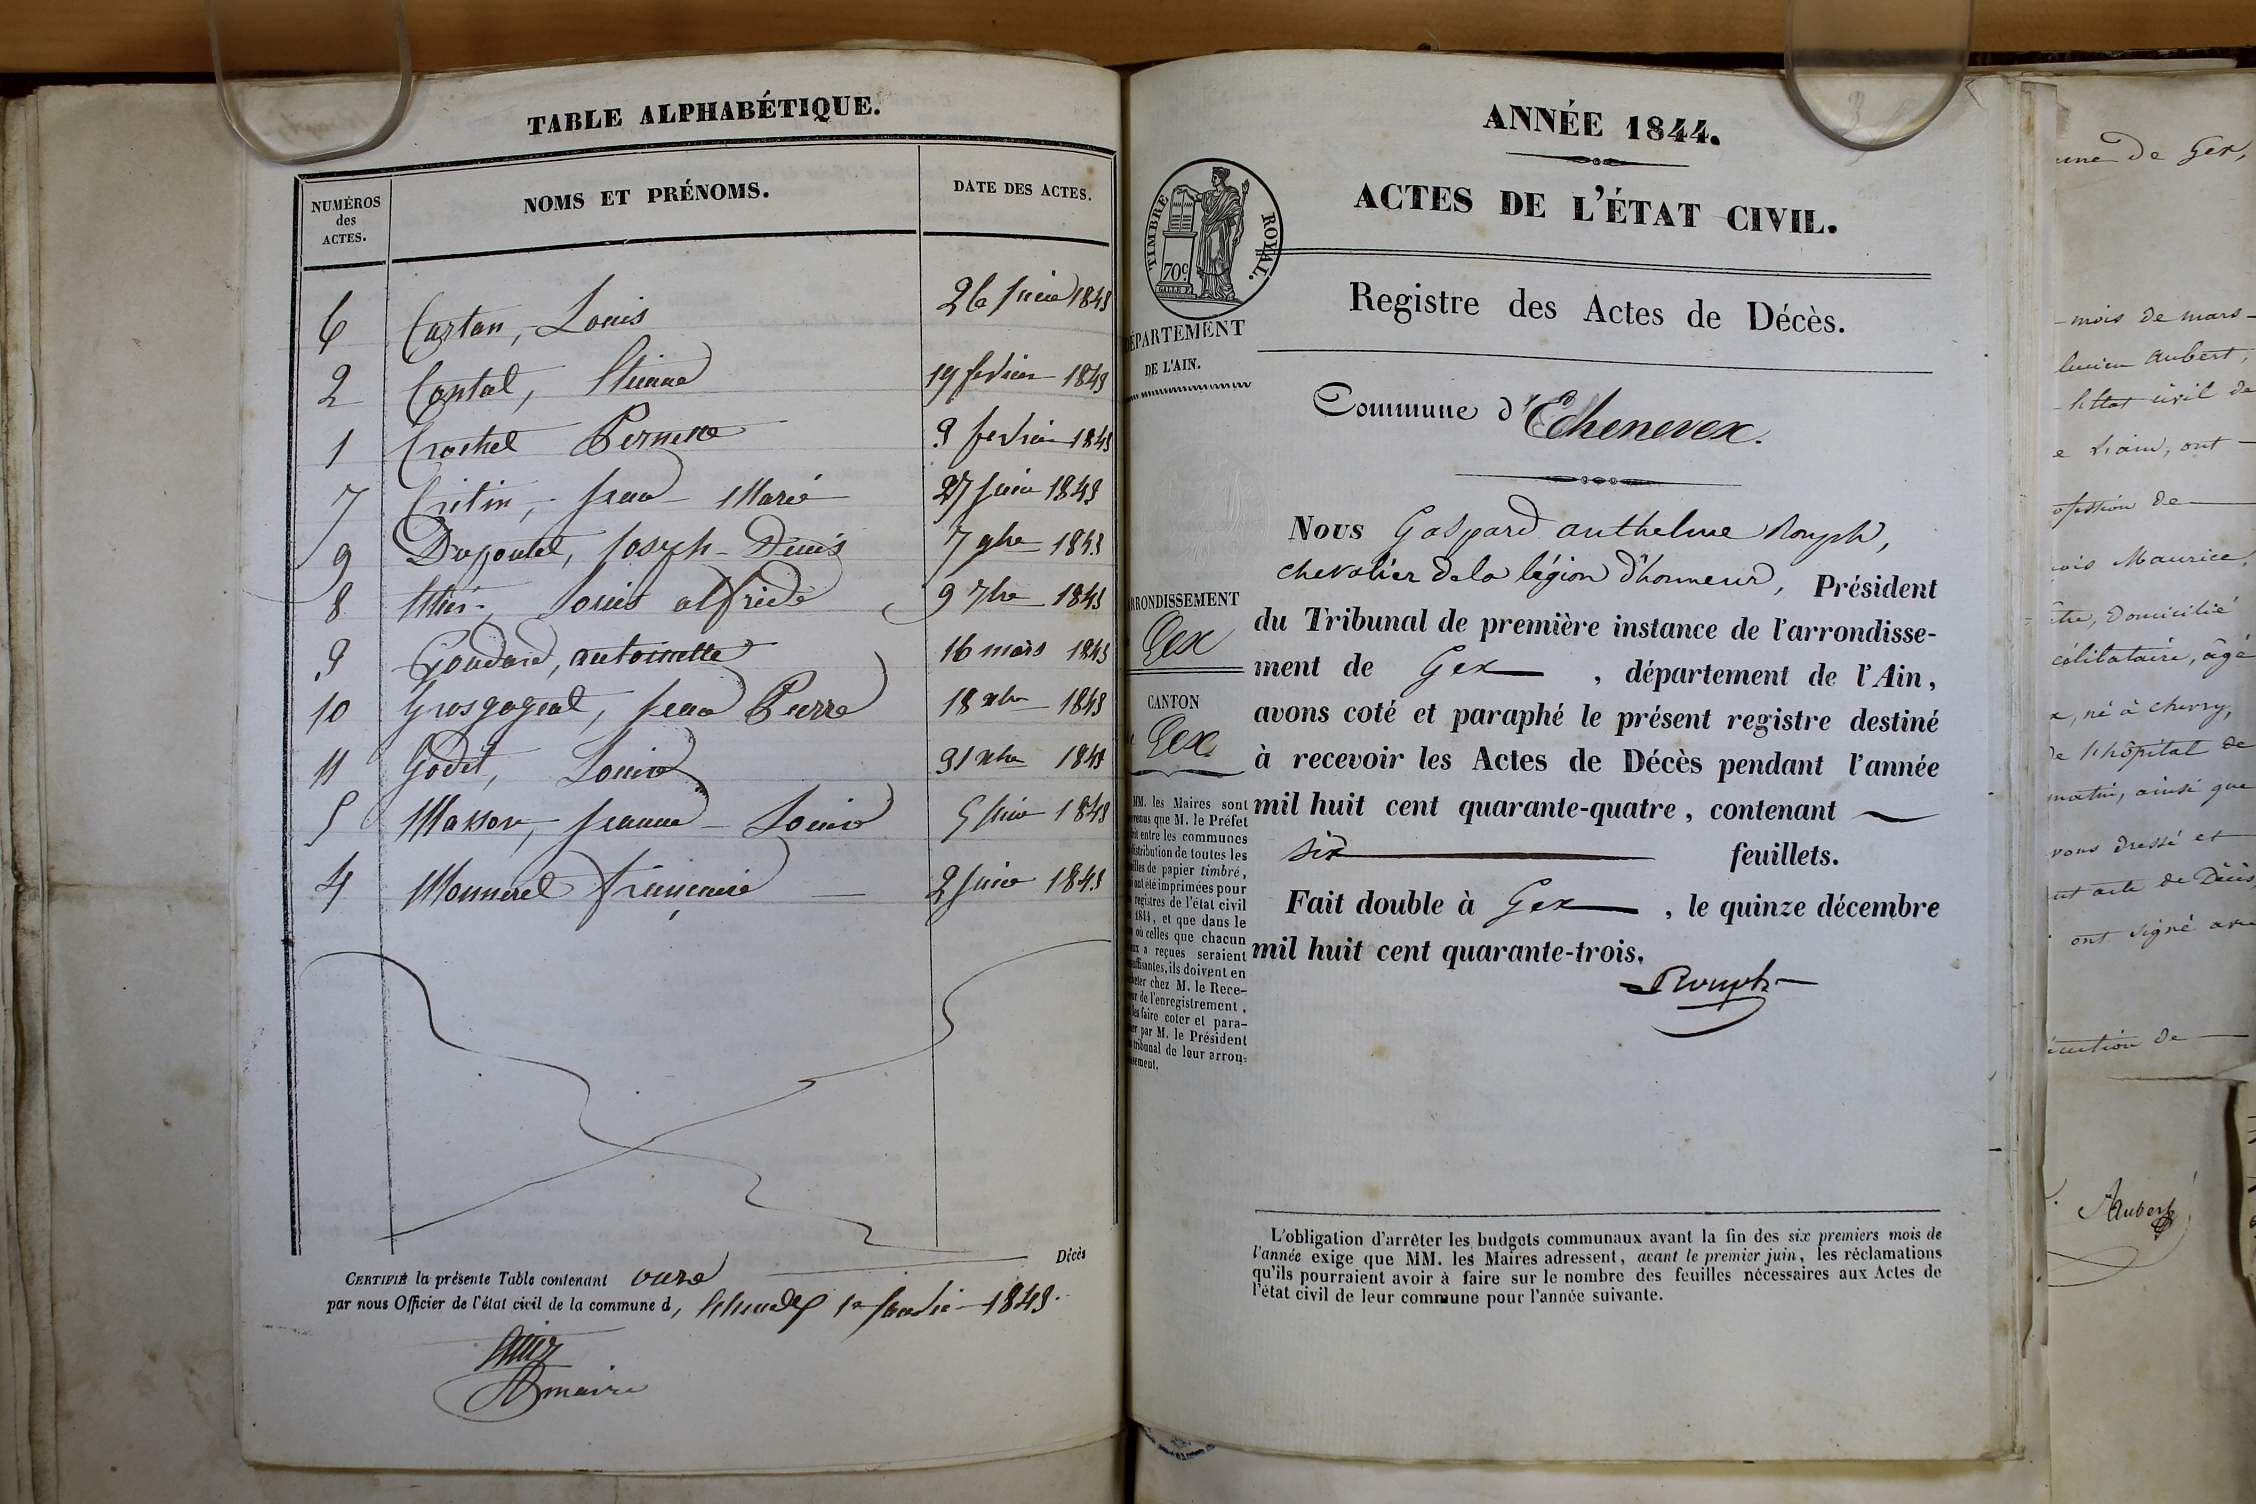 TABLE ALPHABÉTIQUE.
NUMÉROS
des
ACTES.
NOMS ET PRÉNOMS.
DATE DES ACTES.
6 Cartan, Louis 26 juin 1843
2 Contat, Etienne 19 février 1843
1 Crochet Pernette 3 février 1843
7 Critin, Jean Marie 27 juin 1843
9 Dupontet, Joseph Denis 7 9bre 1843
8 Louis alfride 9 7bre 1843
3 Goudard, antoinette 16 mars 1843
10 Grosgogeat, Jean Pierre 18 xbre 1843
11 Godet, Louise 31 xbre 1843
5 Masson, Jeanne Louise 5 juin 1843
4 Monnerel françoise 2 juin 1843
CERTIFIÉ la présente Table contenant onze Décès
par nous Officier de l'état civil de la commune d, 1er 1843.
maire
ANNÉE 1844.
ACTES DE L'ÉTAT CIVIL.
TIMBRE ROYAL.
70c
Registre des Actes de Décès.
DÉPARTEMENT
DE L'AIN.
Commune d'Echenevex.
Nous Gaspard anthelme Rouph,
chevalier de la légion d'honneur, Président
du Tribunal de première instance de l'arrondisse-
ment de Gex , département de l'Ain,
avons coté et paraphé le présent registre destiné
à recevoir les Actes de Décès pendant l'année
mil huit cent quarante-quatre, contenant
six feuillets.
Fait double à Gex , le quinze décembre
mil huit cent quarante-trois.
Rouph
ARRONDISSEMENT
Gex
CANTON
Gex
MM. les Maires sont
que M. le Préfet
entre les communes
distribution de toutes les
de papier timbré,
ont été imprimées pour
registres de l'état civil
1844, et que dans le
où celles que chacun
a reçues seraient
ils doivent en
chez M. le Rece-
de l'enregistrement,
les faire coter et para-
par M. le Président
tribunal de leur arron-
L'obligation d'arrêter les budgets communaux avant la fin des six premiers mois de
l'année exige que MM. les Maires adressent, avant le premier juin, les réclamations
qu'ils pourraient avoir à faire sur le nombre des feuilles nécessaires aux Actes de
l'état civil de leur commune pour l'année suivante.
de Gex,
mois de mars
lucien Aubert,
l'état civil de
ont
de
Maurice,
domicilié
célibataire, âgé
né à chevry,
de l'hôpital de
matin, ainsi que
dressé et
acte de Décès,
ont signé avec
de
Aubert